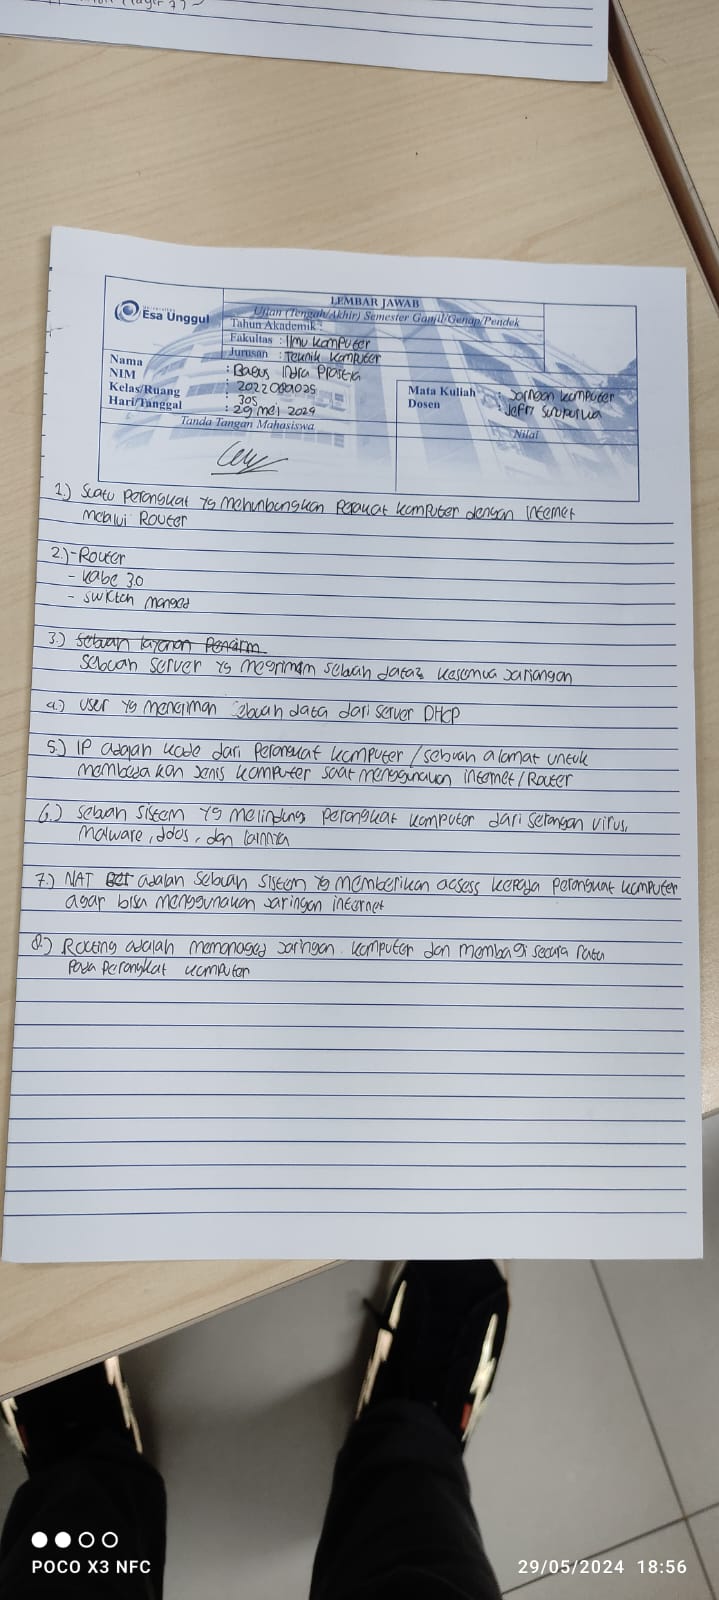 LEMBAR JAWAB
Universitas
Esa Unggul
Ujian (Tengah/Akhir) Semester Ganjil/Genap/Pendek
Tahun Akademik :
Fakultas : Ilmu Komputer
Jurusan : Teknik Komputer
Nama : Bagus Indra Prasetia
NIM : 20220801025
Kelas/Ruang : 305
Hari/Tanggal : 29 mei 2024
Mata Kuliah : Jaringan Komputer
Dosen : Jefri
Tanda Tangan Mahasiswa
Nilai
1.) Suatu perangkat yg mehunbungkan perakat komputer dengan internet
melalui Router
2.) - Router
- kabe 30
- switch manged
3.) sebuah layanan Pengirim
sebuah server yg megirimkm sebuah data2 kesemua jariangan
4.) User yg mengiman sebuah data dari server DHCP
5.) IP adalah kode dari perangkat komputer / sebuah alamat untuk
membeda kan jenis komputer saat menggunakan internet/Router
6.) sebuah sistem yg melindungi perangkat komputer dari serangan virus,
malware, ddos, dan lainnya
7.) NAT adalah sebuah sistem yg memberikan access kepada perangkat komputer
agar bisa menggunakan jaringan internet
8.) Routing adalah memanaged jaringan komputer dan membagi secara rata
pada perangkat komputer
POCO X3 NFC
29/05/2024 18:56